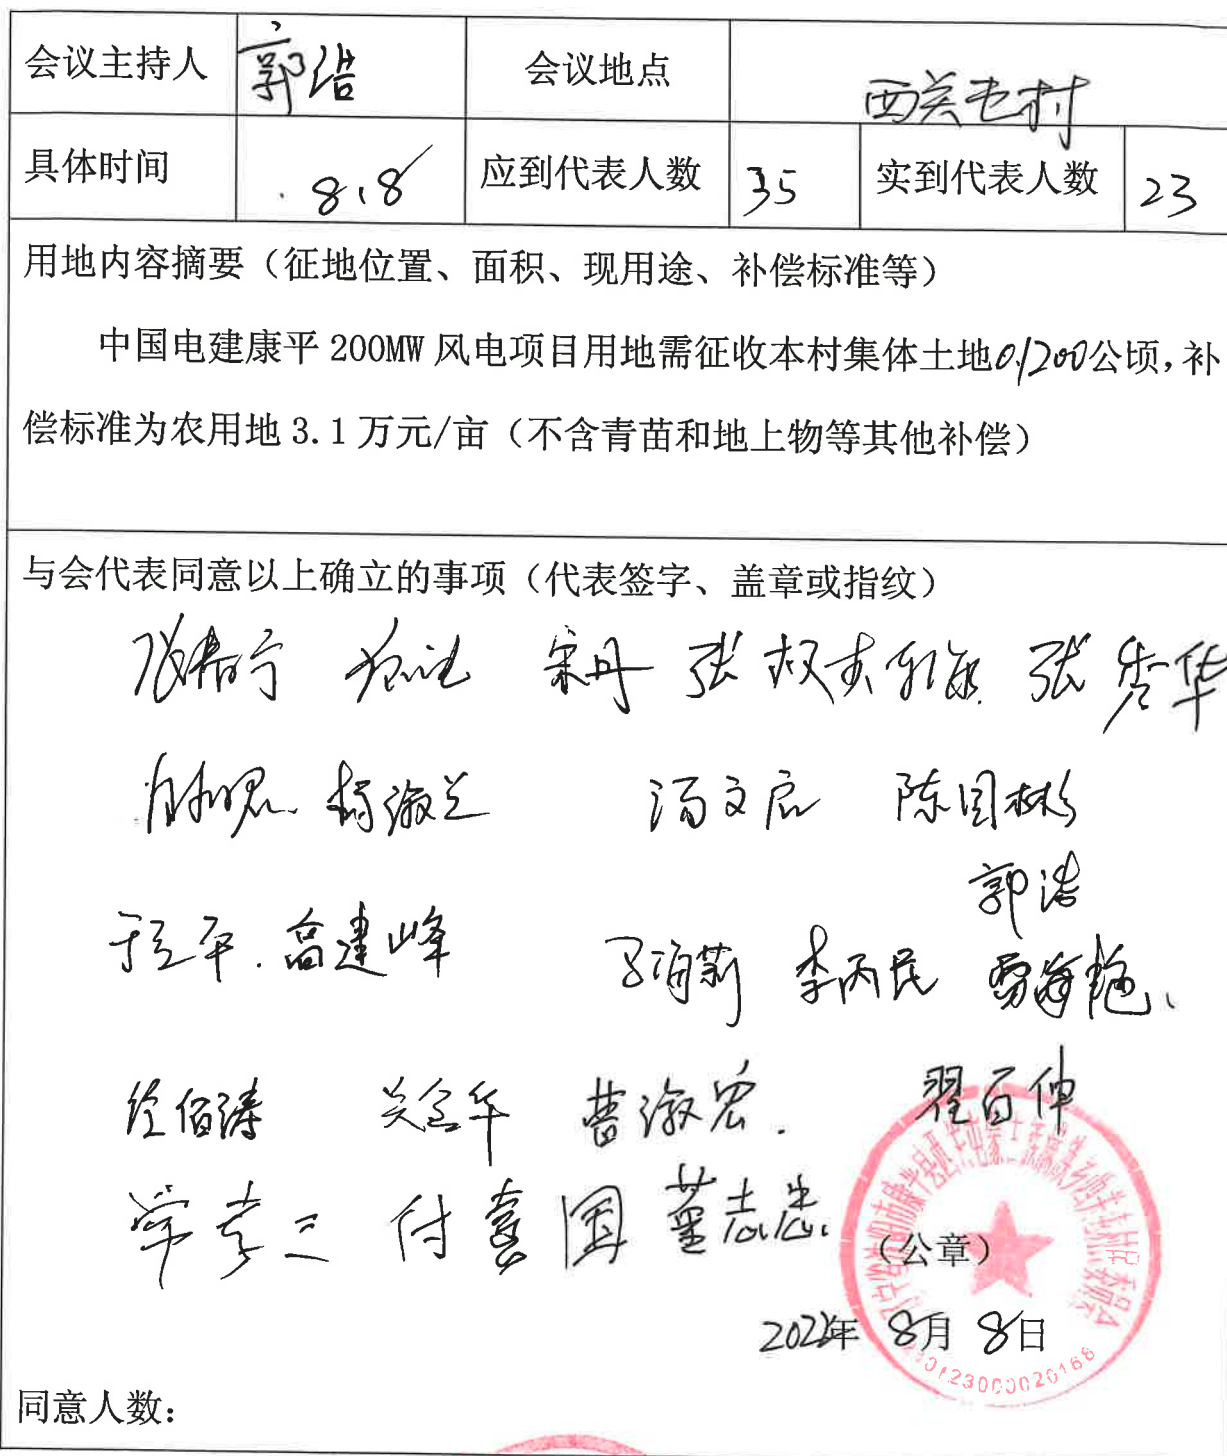 会议主持人 郭浩 会议地点 西关屯村
具体时间 8.8 应到代表人数 35 实到代表人数 23
用地内容摘要（征地位置、面积、现用途、补偿标准等）
中国电建康平 200MW 风电项目用地需征收本村集体土地0.1200公顷，补
偿标准为农用地 3.1 万元/亩（不含青苗和地上物等其他补偿）
与会代表同意以上确立的事项（代表签字、盖章或指纹）
宋丹 张 张秀华
杨淑兰 汤文启 陈国彬
郭浩
于立平 高建峰 李丙民 雷海艳
佰涛 曹淑宏 翟百伸
付喜国 董志忠
（公章）
2022年 8月 8日
210123000020168
同意人数：